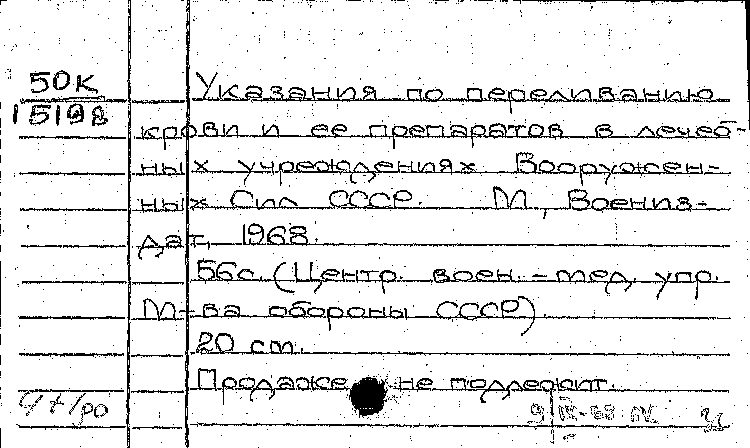 50К
15198
Указания по переливанию
крови и ее препаратов в лечеб-
ных учреждениях Вооружен-
ных Сил СССР. М., Воениз-
дат, 1968.
56с. (Центр. воен.-мед. упр.
М-ва обороны СССР)
20 cm.
Продаже не подлежит.